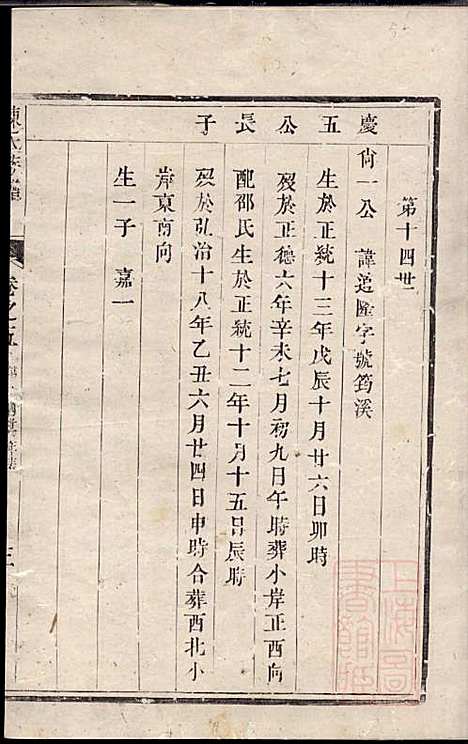 第十四世
慶五公長子
尙一公 諱追匯字號筠溪
生於正統十三年戊辰十月廿六日卯時
歿於正德六年辛未七月初九日午時葬小岸正西向
配邵氏生於正統十二年十月十五日辰時
歿於弘治十八年乙丑六月廿四日申時合葬西北小
岸東南向
生一子 嘉一
陳氏宗譜
卷之五
三
上海圖書館藏